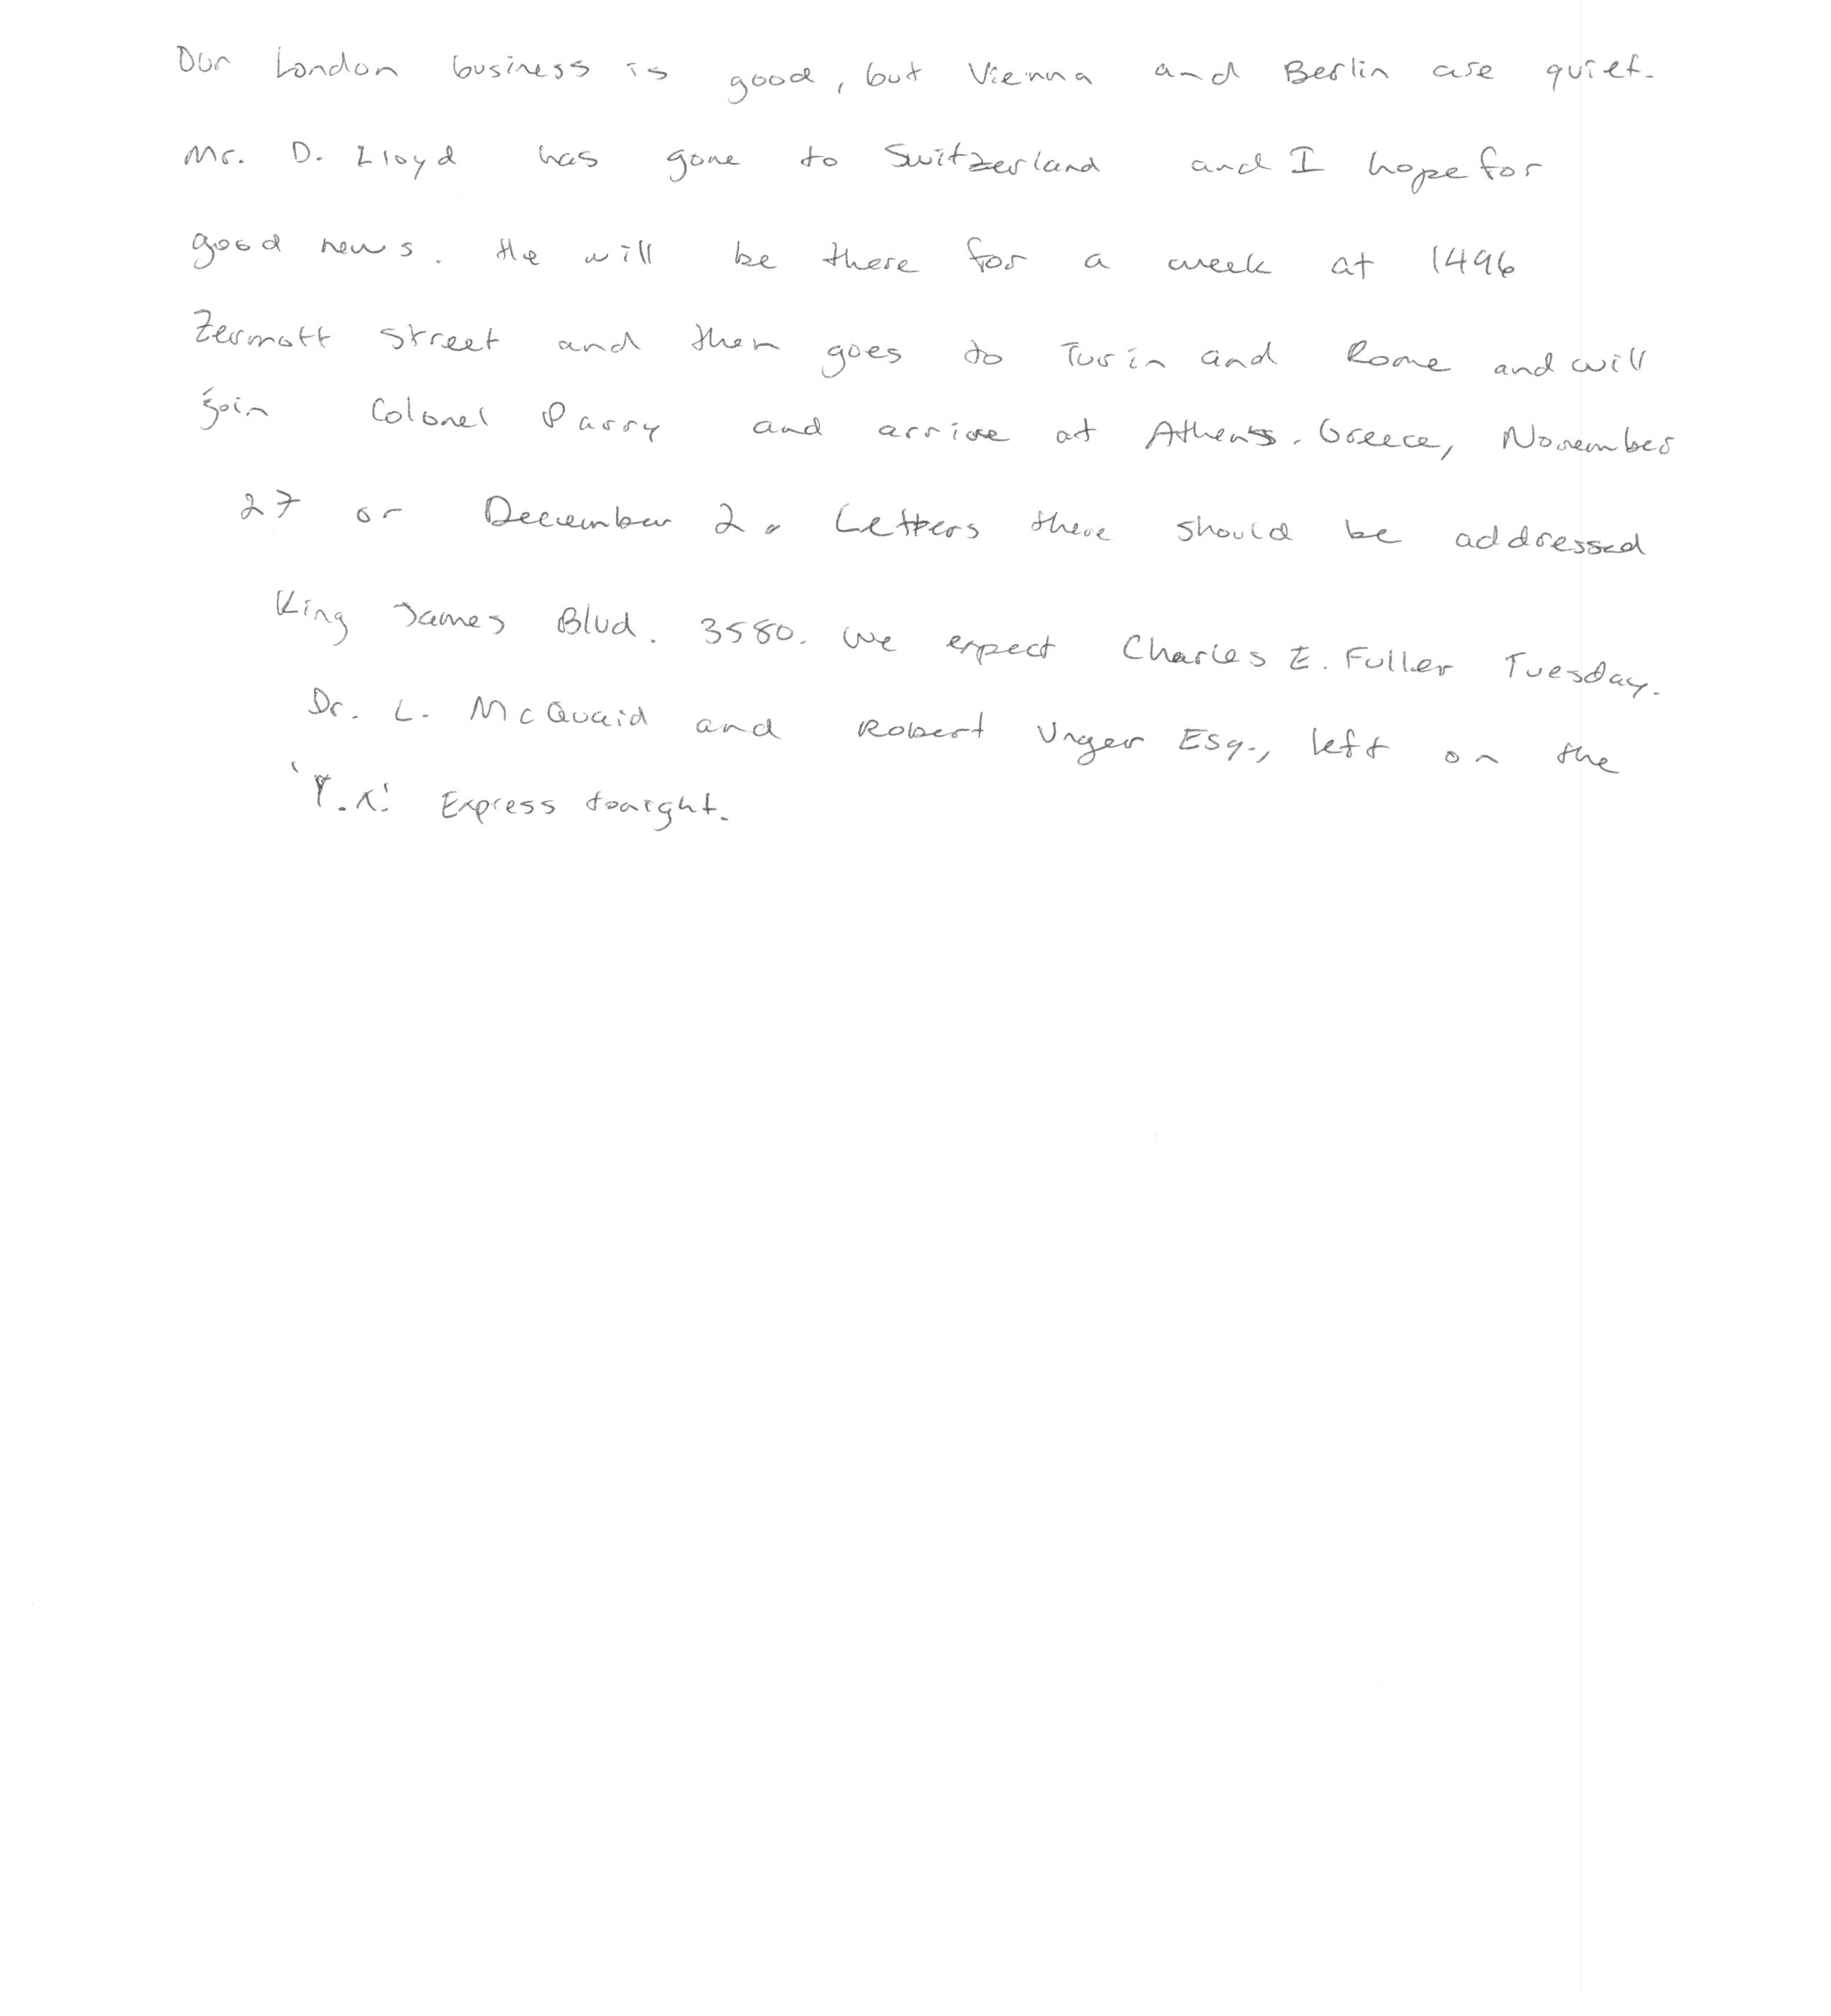 Our London business is good, but Vienna and Berlin are quiet.
Mr. D. Lloyd has gone to Switzerland and I hope for
good news. He will be there for a week at 1496
Zermott Street and then goes to Turin and Rome and will
join Colonel Parry and arrive at Athens. Greece, November
27 or December 2. Letters there should be addressed
King James Blvd. 3580. We expect Charles E. Fuller Tuesday.
Dr. L. McQuaid and Robert Unger Esq., left on the
Express tonight.